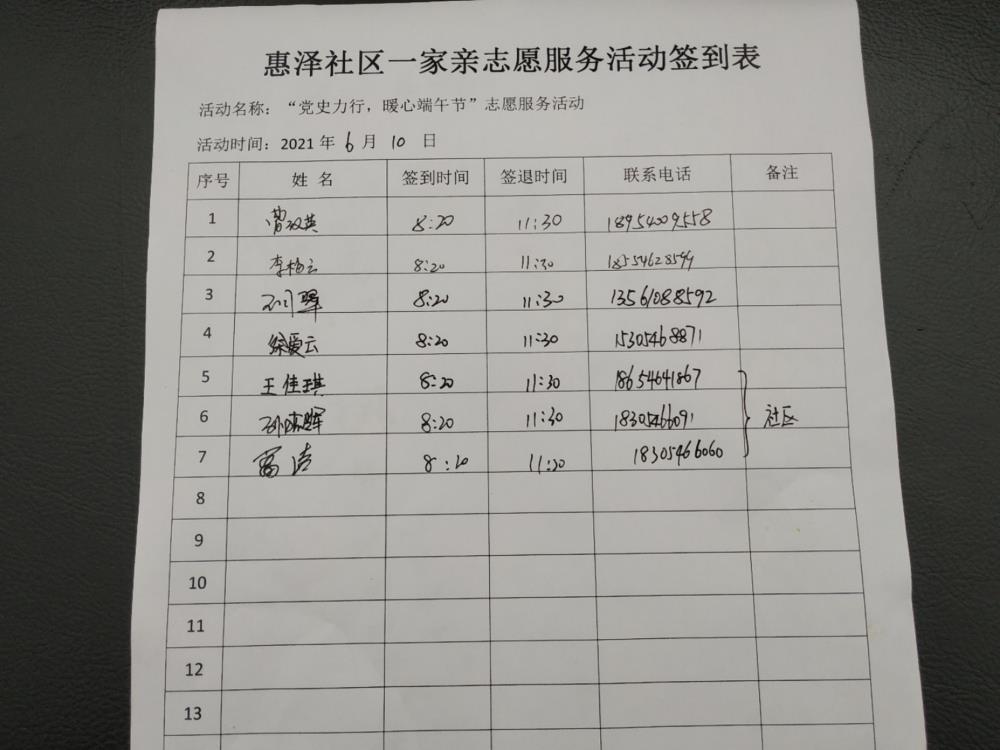 惠泽社区一家亲志愿服务活动签到表
活动名称：“党史力行，暖心端午节”志愿服务活动
活动时间：2021 年 6 月 10 日
序号 姓 名 签到时间 签退时间 联系电话 备注
1 曹双英 8:20 11:30 18954009558
2 李杨云 8:20 11:30 18554628599
3 8:20 11:30 13561088592
4 徐爱云 8:20 11:30 15305468871
5 王佳琪 8:20 11:30 18654641867
6 8:20 11:30 18305466091 社区
7 8:20 11:30 18305466060
8
9
10
11
12
13